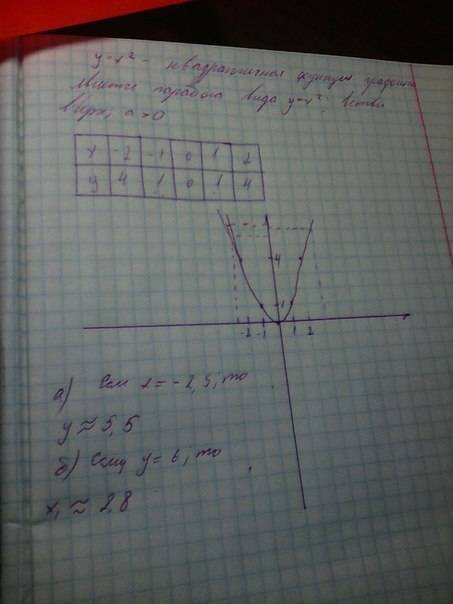 y=x² - квадратичная функция график
является парабола вида y=x² ветви
вверх, a>0
x -2 -1 0 1 2
y 4 1 0 1 4
4
1
-2 -1 1 2
а) Если x = -2,5, то
y ≈ 5,5
б) Если y = 6, то
x₁ ≈ 2,8